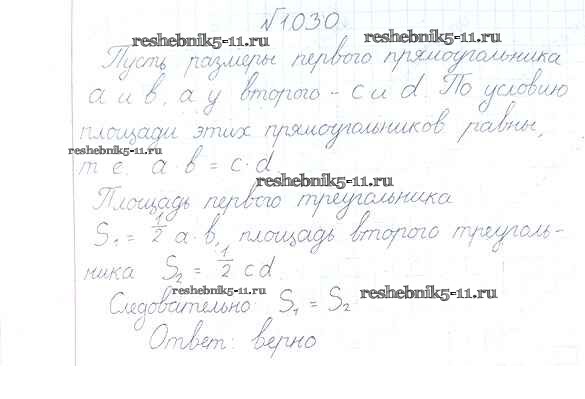 №1030.
reshebnik5-11.ru
reshebnik5-11.ru
Пусть размеры первого прямоугольника
a и b, а у второго - c и d. По условию
площади этих прямоугольников равны,
reshebnik5-11.ru
т. е. a · b = c · d
reshebnik5-11.ru
Площадь первого треугольника
S₁ = 1/2 a · b, площадь второго треуголь-
ника S₂ = 1/2 c d.
reshebnik5-11.ru
reshebnik5-11.ru
Следовательно: S₁ = S₂
Ответ: верно